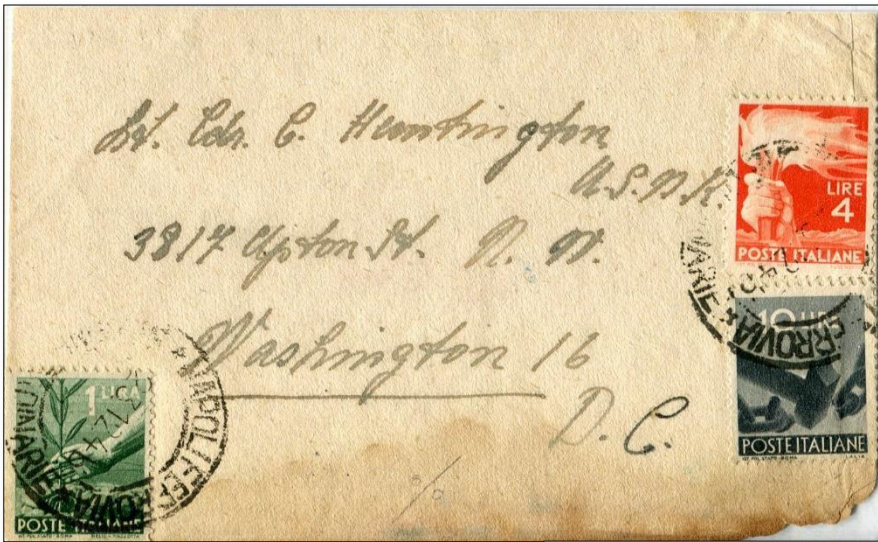 Lt. Cdr. C. Huntington
U.S.N.R.
3817 Upton St. N. W.
Washington 16
D. C.
LIRE
4
POSTE ITALIANE
10 LIRE
POSTE ITALIANE
1 LIRA
POSTE ITALIANE
NAPOLI FERROVIA
ORDINARIE
FERROVIA